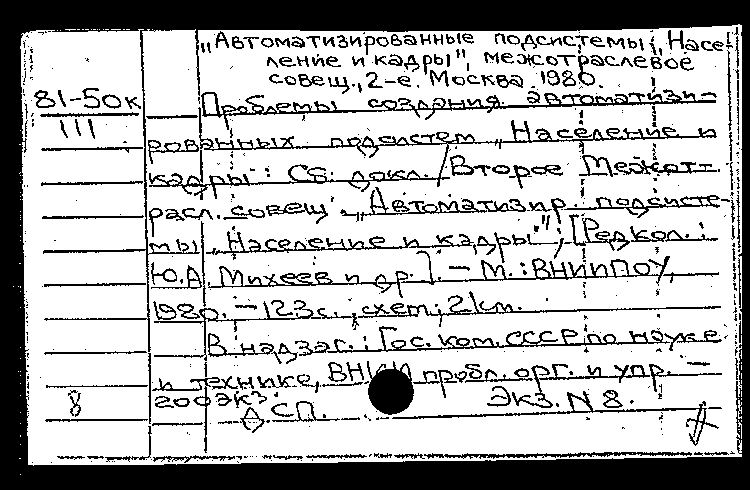 „Автоматизированные подсистемы „Насе-
ление и кадры", межотраслевое
совещ., 2-е. Москва 1980.
81-50к
Проблемы создания автоматизи-
111
рованных подсистем „Население и
кадры": Сб. докл. / Второе Межот-
расл. совещ. „Автоматизир. подсисте-
мы „Население и кадры""; [Редкол.:
Ю.А. Михеев и др.]. - М.: ВНИИПОУ,
1980. - 123 с., схем; 21 см.
В надзаг.: Гос. ком. СССР по науке
и технике, ВНИИ пробл. орг. и упр. -
8
200 экз.
ДСП.
Экз. N 8.